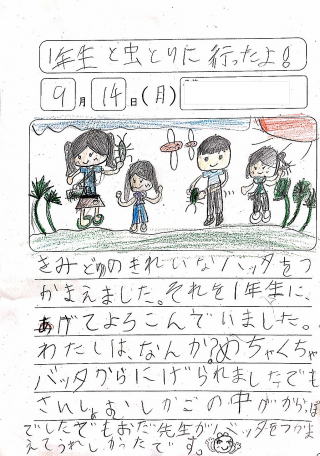 1年生と虫とりに行ったよ！
9月14日(月)
きみどりのきれいなバッタをつ
かまえました。それを1年生に、
あげてよろこんでいました。
わたしは、なんか?めちゃくちゃ
バッタからにげられましたでも
さいしょむしかごの中ががらっぽ
でしたでもおだ先生がバッタをつかま
えてうれしかったです。